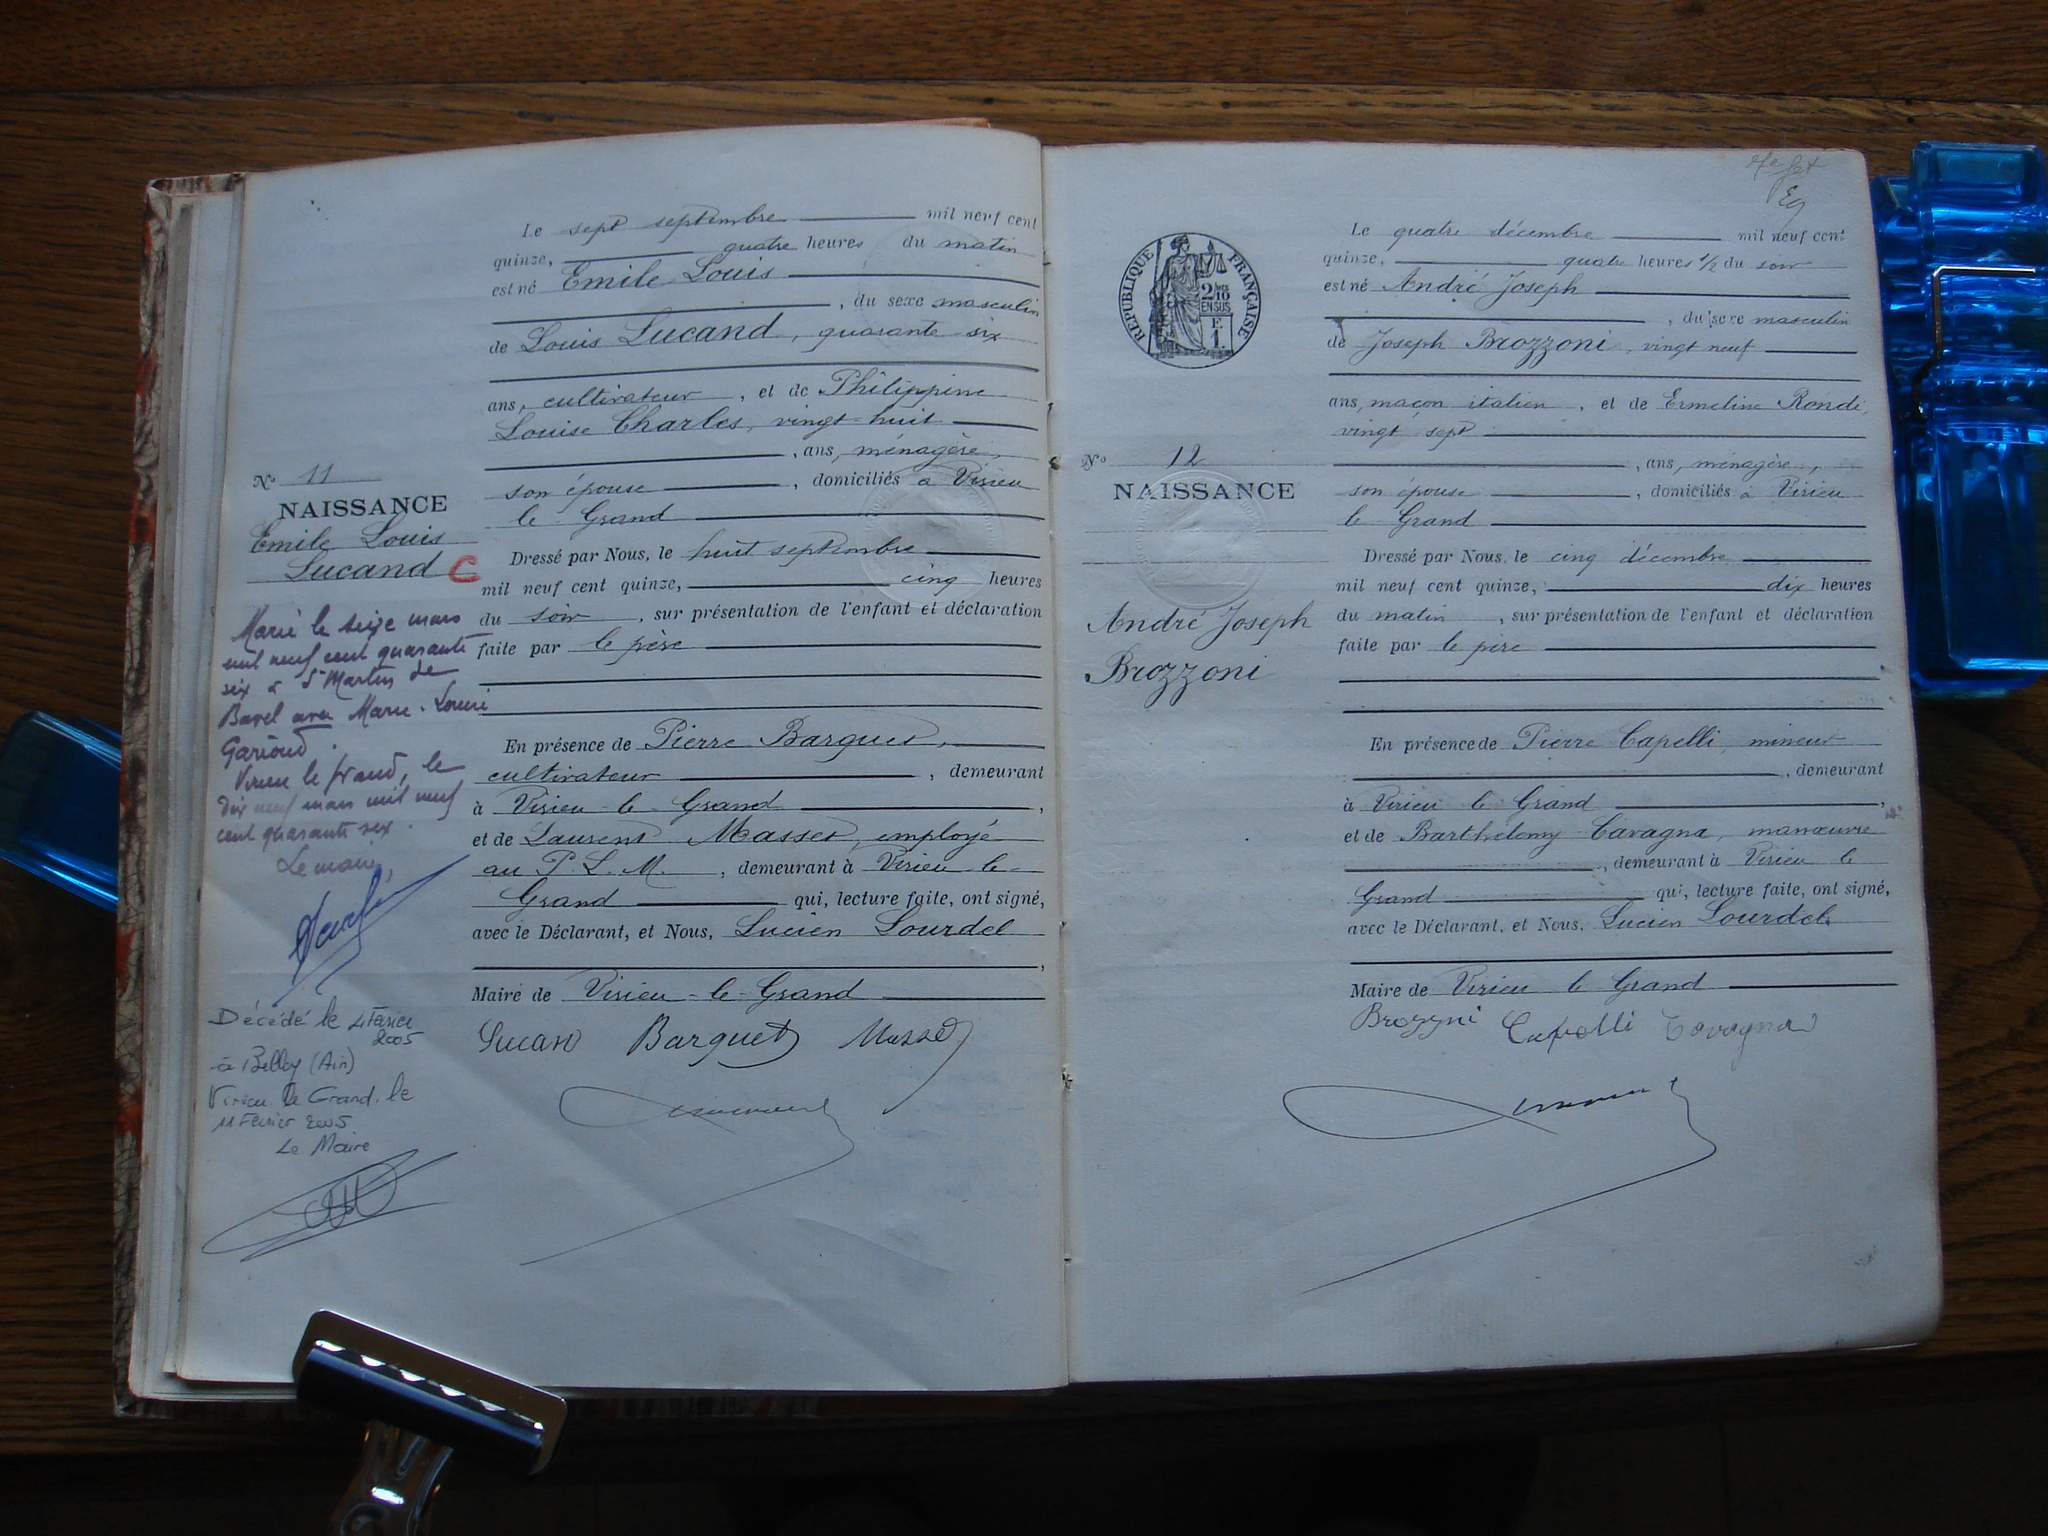 Le sept septembre mil neuf cent
quinze, quatre heures du matin
est né Emile Louis
, du sexe masculin
de Louis Lucand, quarante six
ans, cultivateur, et de Philippine
Louise Charles, vingt-huit
, ans, ménagère,
son épouse, domiciliés à Virieu
le Grand
Dressé par Nous, le huit septembre
mil neuf cent quinze, cinq heures
du soir, sur présentation de l'enfant et déclaration
faite par le père
En présence de Pierre Barquet,
cultivateur, demeurant
à Virieu-le-Grand,
et de Laurent Masset, employé
au P. L. M., demeurant à Virieu-le-
Grand qui, lecture faite, ont signé,
avec le Déclarant, et Nous, Lucien Lourdel
,
Maire de Virieu-le-Grand
Lucand Barquet Masset
No 11
NAISSANCE
Emile Louis
Lucand C
Marié le seize mars
mil neuf cent quarante
six à St Martin de
Bavel avec Marie-Louise
Garioud.
Virieu le Grand, le
dix neuf mars mil neuf
cent quarante six.
Le maire,
Décédé le 4 Février
2005
à Belley (Ain)
Virieu le Grand, le
11 Février 2005
Le Maire
REPUBLIQUE FRANÇAISE
2/10
EN SUS
F.
1.
Le quatre décembre mil neuf cent
quinze, quatre heures 1/2 du soir
est né André Joseph
, du sexe masculin
de Joseph Brozzoni, vingt neuf
ans, maçon italien, et de Ermeline Rondi,
vingt sept
, ans, ménagère,
son épouse, domiciliés à Virieu
le Grand
Dressé par Nous, le cinq décembre
mil neuf cent quinze, dix heures
du matin, sur présentation de l'enfant et déclaration
faite par le père
En présence de Pierre Capelli, mineur
, demeurant
à Virieu le Grand,
et de Barthélomy Cavagna, manœuvre
, demeurant à Virieu le
Grand qui, lecture faite, ont signé,
avec le Déclarant, et Nous, Lucien Lourdel
Maire de Virieu le Grand
Brozzni Capelli Cavagna
No 12
NAISSANCE
André Joseph
Brozzoni